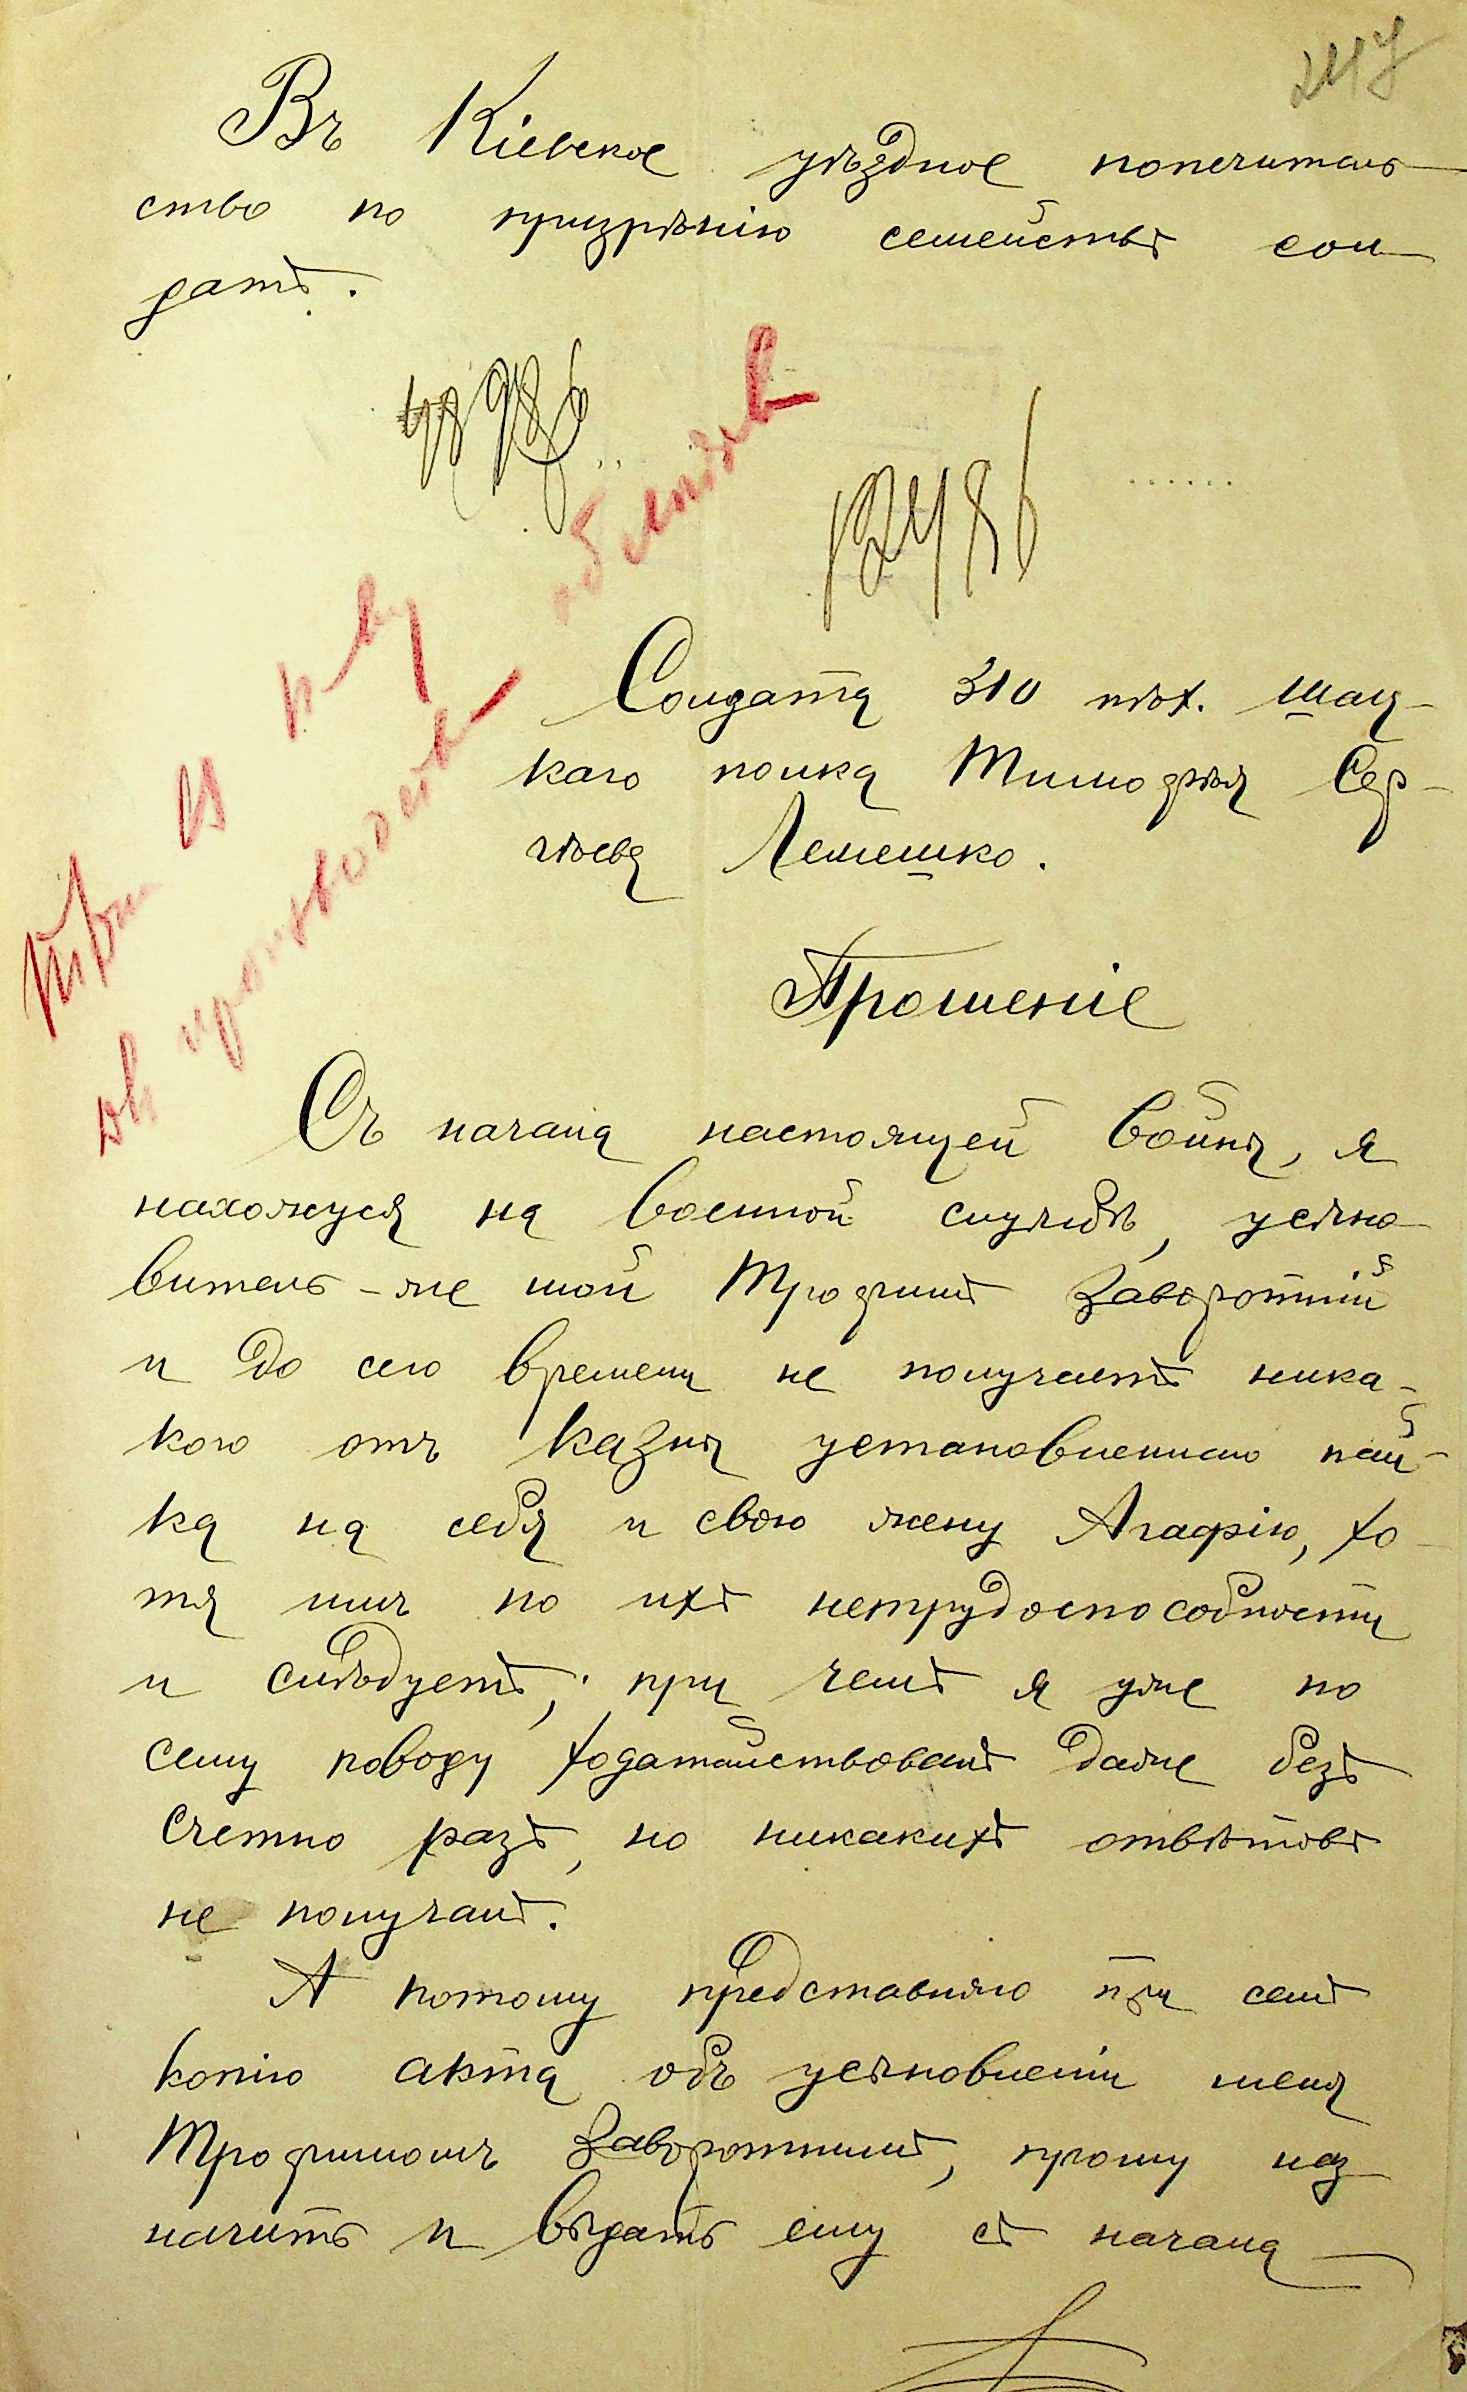 247
Въ Кіевское уѣздное попечитель
ство по призрѣнію семействъ сол
датъ.
12486
Солдата 310 пѣх. Шац-
каго полка Тимофѣя Сер-
гѣева Лемешко.
Прошеніе
Съ начала настоящей войны, я
нахожуся на военной службѣ, усыно
витель-же мой Трофимъ Заворотній
и до сего времени не получаетъ ника-
кого отъ казны установленнаго пай-
ка на себя и свою жену Агафію, хо-
тя имъ по ихъ нетрудоспособности
и слѣдуетъ; при чемъ я уже по
сему поводу ходатайствовалъ даже безъ
счетно разъ, но никакихъ отвѣтовъ
не получалъ.
А потому представляю при семъ
копію акта объ усыновленіи меня
Трофимомъ Заворотнимъ, прошу наз
начить и выдать ему съ начала